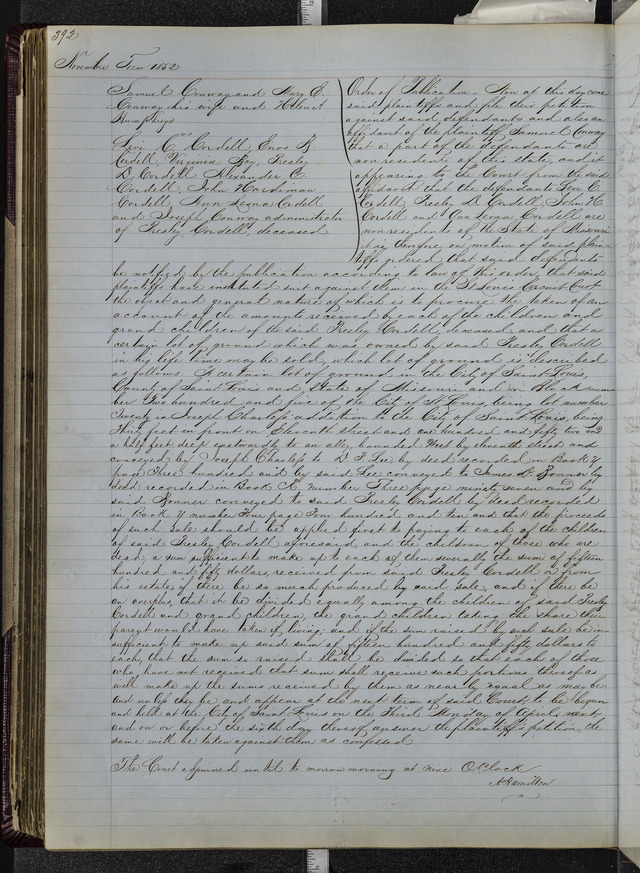 392
November Term 1852
Samuel Conway and Mary C.
Conway his wife and
Humphreys
vs
Levi C. Cordell, Enos B
Cordell, Virginia Ray, Presley
D. Cordell Alexander C
Cordell, John Hardeman
Cordell, Ann Leona Cordell
and Joseph Conway administrator
of Presley Cordell, deceased
Order of Publication Now at this day come
said plaintiffs and file their petition
against said defendants and also an
affidavit of the plaintiff Samuel Conway
that a part of the defendants are
non residents of this state, and it
appearing to the Court from the said
affidavit that the defendants Levi C.
Cordell, Presley D. Cordell, John H.
Cordell and Ann Leona Cordell are
non residents of the State of Missouri
it is therefore on motion of said plain-
tiffs ordered that said defendants
be notified by the publication according to law of this order, that said
plaintiffs have instituted suit against them in the St Louis Circuit Court
the object and general nature of which is to procure the taken of an
account of the amounts received by each of the children and
grand children of the said Presley Cordell deceased and that a
certain lot of ground which was owned by said Presley Cordell
in his life time may be sold, which lot of ground is described
as follows A certain lot of ground in the City of Saint Louis,
County of Saint Louis and State of Missouri and in Block num
ber Two hundred and five of the City of St Louis being lot number
Twenty in Joseph Charless addition to the City of Saint Louis, being
Thirty feet in front on Eleventh Street and one hundred and fifty two and
a half feet deep eastwardly to an alley, bounded West by eleventh street and
conveyed by Joseph Charless to D. F. by deed recorded in Book Y
page Three hundred and by said conveyed to James R. Bonner by
deed recorded in Book number Three page ninety seven and by
said Bonner conveyed to said Presley Cordell by deed recorded
in Book Y number Four page Four hundred and ten and that the proceeds
of such sale should be applied first to paying to each of the children
of said Presley Cordell aforesaid and the children of those who are
dead, a sum sufficient to make up to each of them severally the sum of fifteen
hundred and fifty dollars, received from said Presley Cordell or from
his estate, if there be so much produced by said sale, and if there be
an overplus, that it be divided equally among the children of said Presley
Cordell and grand children, the grand children taking the share their
parent would have taken if living, and if the sum raised by such sale be in-
sufficient to make up said sum of fifteen hundred and fifty dollars to
each, that the sum so raised shall be divided so that each of those
who have not received that sum shall receive such portions thereof as
will make up the sums received by them as nearly equal as may be
and unless they be and appear at the next term of said Court, to be begun
and held at the City of Saint Louis on the Third Monday of April next,
and on or before the sixth day thereof answer the plaintiffs petition, the
same will be taken against them as confessed
The Court adjourned until to morrow morning at nine O'Clock
A Hamilton